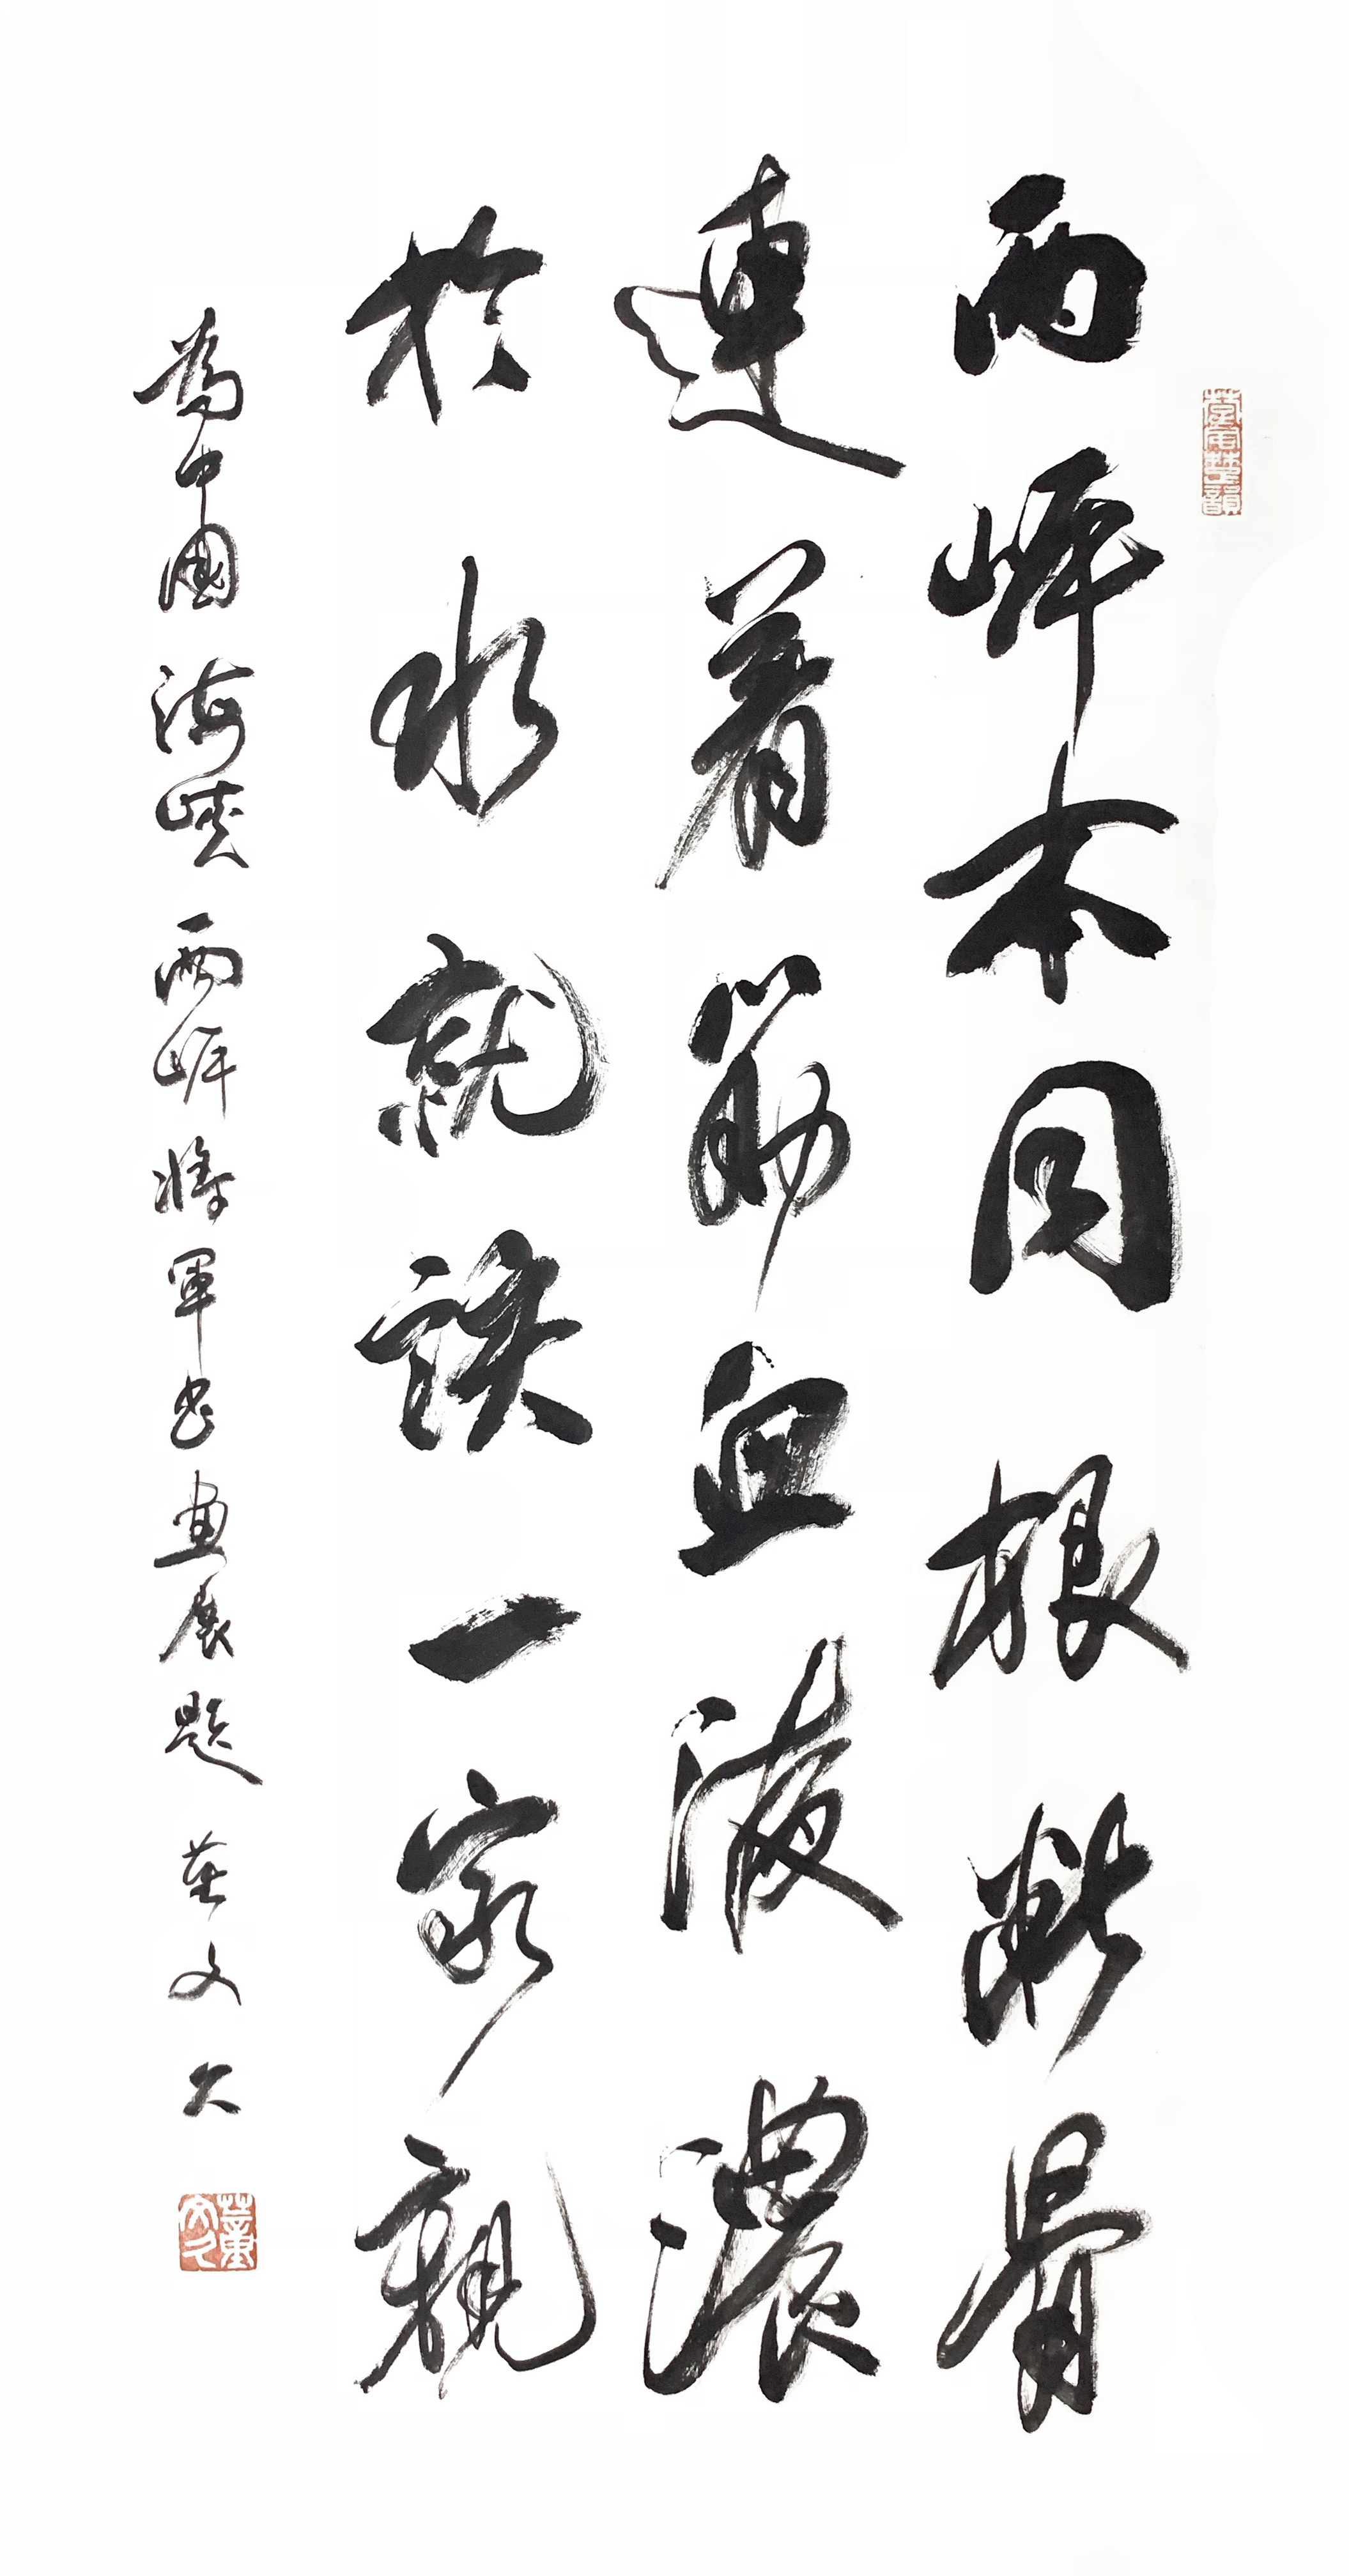 兩岸本同根斷骨
連着筋血液濃
於水就該一家親
為中國海峽兩岸將軍書畫展題 董文久
董文久